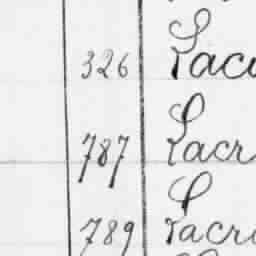 326 Lacu
787 Lacr
789 Lacri